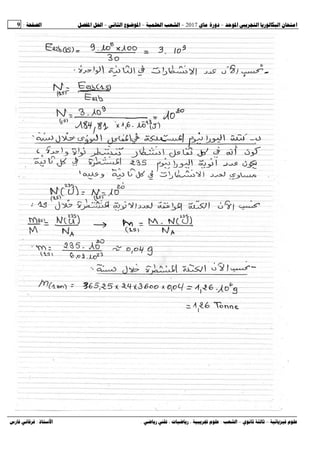 امتحان البكالوريا التجريبي الموحد - دورة ماي 2017 - الشعب العلمية - الموضوع الثاني - الحل المفصل
الصفحة 9
Eab(1s) = 9.10⁸ × 100 / 30 = 3.10⁹
- نحسب الآن عدد الانشطارات في الثانية الواحدة:
N(1s) = Eab(1s) / Elib
N(1s) = 3.10⁹ / 184,81 × 1,6.10⁻¹³ (J) = 10²⁰
كتلة اليورانيوم المستهلكة في المفاعل النووي خلال سنة:
كون أنه في كل تفاعل انشطار تنشطر نواة واحدة،
يكون عدد أنوية اليورانيوم 235 المنشطرة في كل ثانية
مساوي لعدد الانشطارات في كل ثانية وعليه:
N(²³⁵U)(1s) = N(1s) = 10²⁰
نحسب الآن الكتلة الموافقة لعدد الأنوية المنشطرة خلال 1s:
m(1s)/M = N(²³⁵U)/NA → m(1s) = M.N(²³⁵U)/NA
m(1s) = 235.10²⁰ / 6,03.10²³ ≈ 0,04 g
- نحسب الآن الكتلة المنشطرة خلال سنة:
m(1an) = 365,25 × 24 × 3600 × 0,04 = 1,26.10⁶ g
= 1,26 Tonne
علوم فيزيائية - ثالثة ثانوي - الشعب: علوم تجريبية - رياضيات - تقني رياضي
الأستاذ: فرقاني فارس